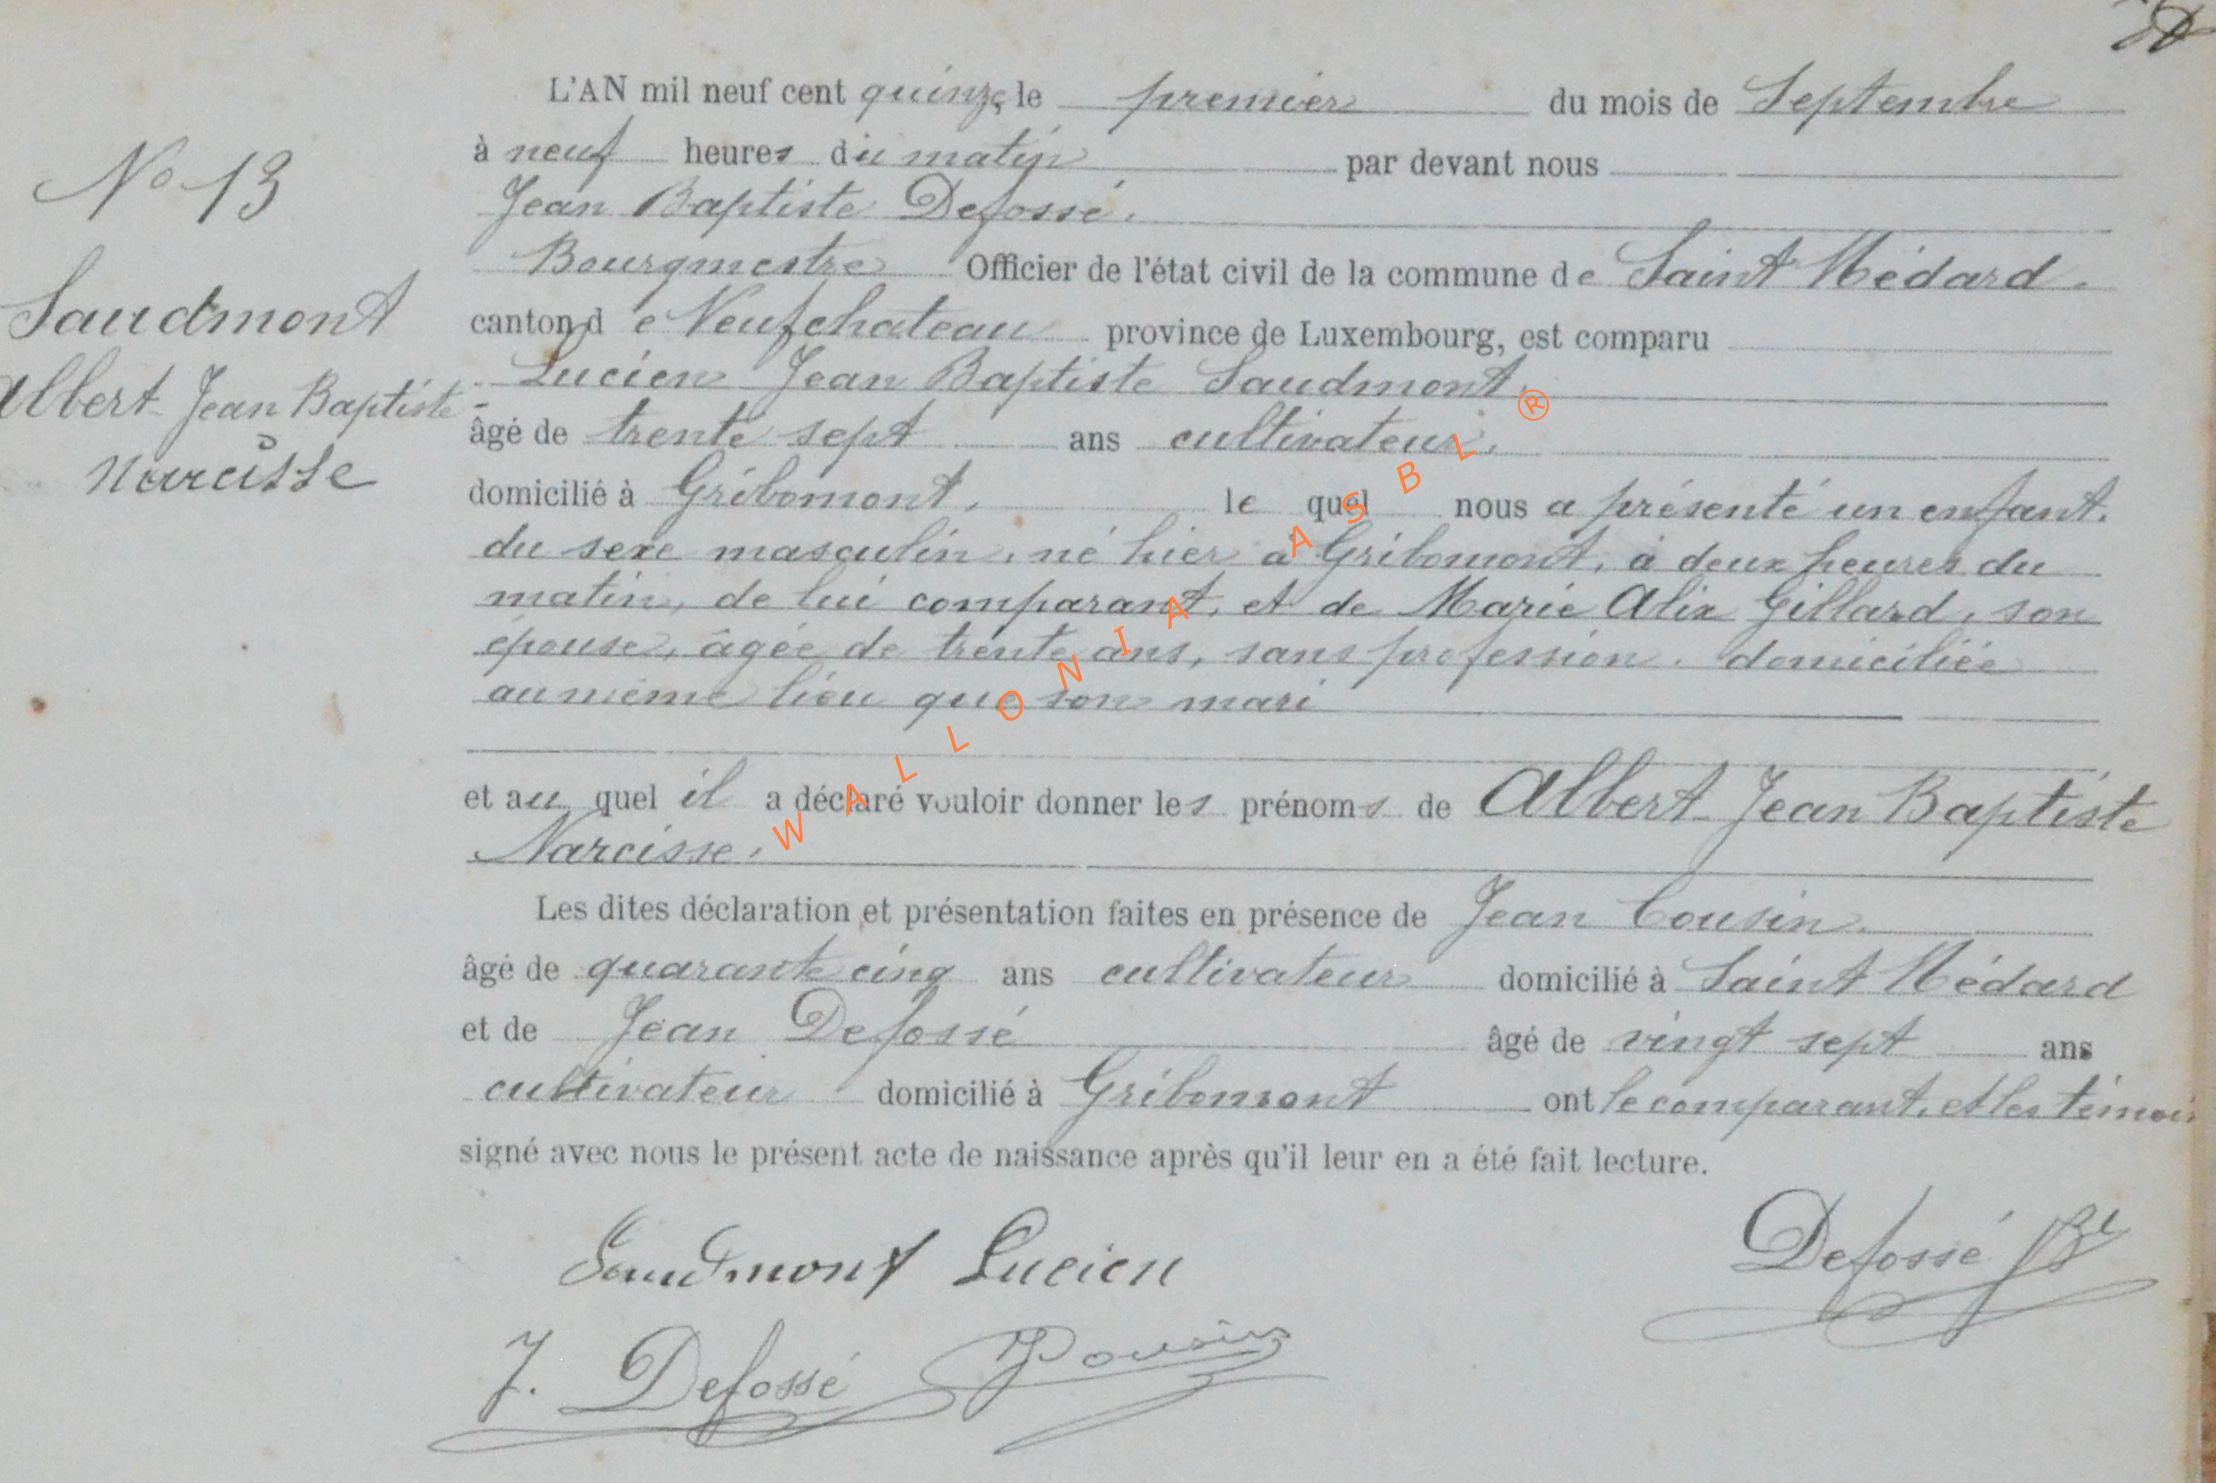 L'AN mil neuf cent quinze, le premier du mois de Septembre
à neuf heures du matin par devant nous
Jean Baptiste Defossé.
Bourgmestre Officier de l'état civil de la commune de Saint Médard.
canton de Neufchateau province de Luxembourg, est comparu
Lucien Jean Baptiste Saudmont.
âgé de trente sept ans cultivateur.
domicilié à Gribomont. le quel nous a présenté un enfant.
du sexe masculin, né hier à Gribomont, à deux heures du
matin, de lui comparant, et de Marie Alix Gillard, son
épouse, âgée de trente ans, sans profession. domiciliée
au même lieu que son mari
et au quel il a déclaré vouloir donner les prénoms de Albert Jean Baptiste
Narcisse.
Les dites déclaration et présentation faites en présence de Jean Cousin.
âgé de quarante cinq ans cultivateur domicilié à Saint Médard
et de Jean Defossé âgé de vingt sept ans
cultivateur domicilié à Gribomont ont le comparant, et les témoins
signé avec nous le présent acte de naissance après qu'il leur en a été fait lecture.
No 13
Saudmont
Albert Jean Baptiste
Narcisse
Saudmont Lucien
Defossé JBt
J. Defossé JCousin
WALLONIA ASBL ®